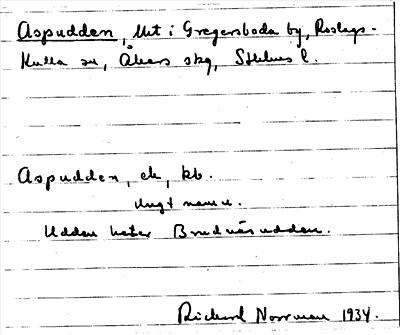 Aspudden, Unt i Gregersboda by, Roslags-
Kulla sn, Åkers skg, Sthlms l.
Aspudden, ek, kb.
Ungt namn.
Udden heter Brudnäsudden.
Richard Norrman 1934.